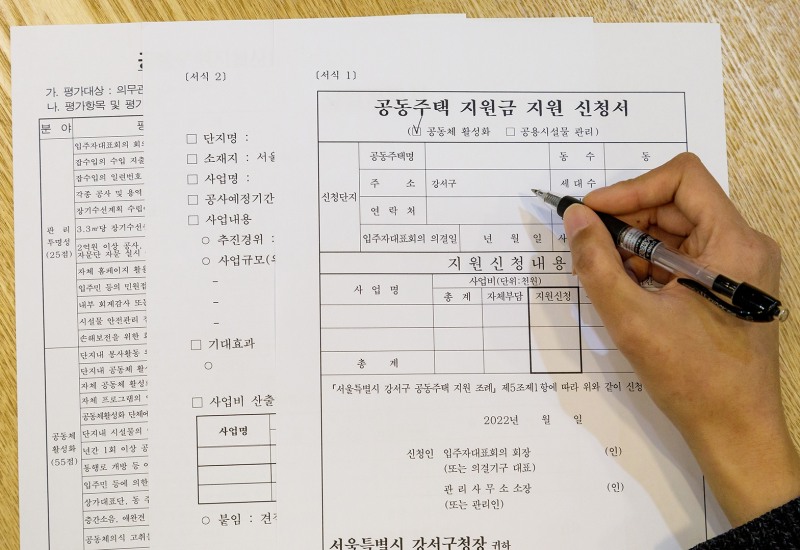 가. 평가대상 : 의무관
나. 평가항목 및 평가
분 야
관 리
투명성
(25점)
입주자대표회의 회의
잡수입의 수입 지출
잡수입의 일련번호
각종 공사 및 용역
장기수선계획 수립
3.3㎡당 장기수선
2억원 이상 공사,
자문단 자문 실시
자체 홈페이지 활용
입주민 등의 민원접
내부 회계감사 또는
시설물 안전관리
손해보전을 위한
공동체
활성화
(55점)
단지내 봉사활동
단지내 공동체 활성
자체 공동체 활성
자체 프로그램의
공동체활성화 단체에
단지내 시설물의
년간 1회 이상 공
통행로 개방 등
입주민 등에 의한
상가대표단, 동
층간소음, 애완견
공동체의식 고취
〔서식 2〕
□ 단지명 :
□ 소재지 : 서울
□ 사업명 :
□ 공사예정기간
□ 사업내용
○ 추진경위 :
○ 사업규모(
-
-
-
□ 기대효과
○
□ 사업비 산출
사업명
○ 붙임 : 견적
〔서식 1〕
공동주택 지원금 지원 신청서
(☑ 공동체 활성화 □ 공용시설물 관리)
신청단지
공동주택명 동 수 동
주 소 강서구 세대수
연 락 처
입주자대표회의 의결일 년 월 일
지 원 신 청 내 용
사 업 명 사업비(단위:천원)
총 계 자체부담 지원신청
총 계
「서울특별시 강서구 공동주택 지원 조례」 제5조제1항에 따라 위와 같이 신청
2022년 월 일
신청인 입주자대표회의 회장 (인)
(또는 의결기구 대표)
관 리 사 무 소 소장 (인)
(또는 관리인)
서울특별시 강서구청장 귀하